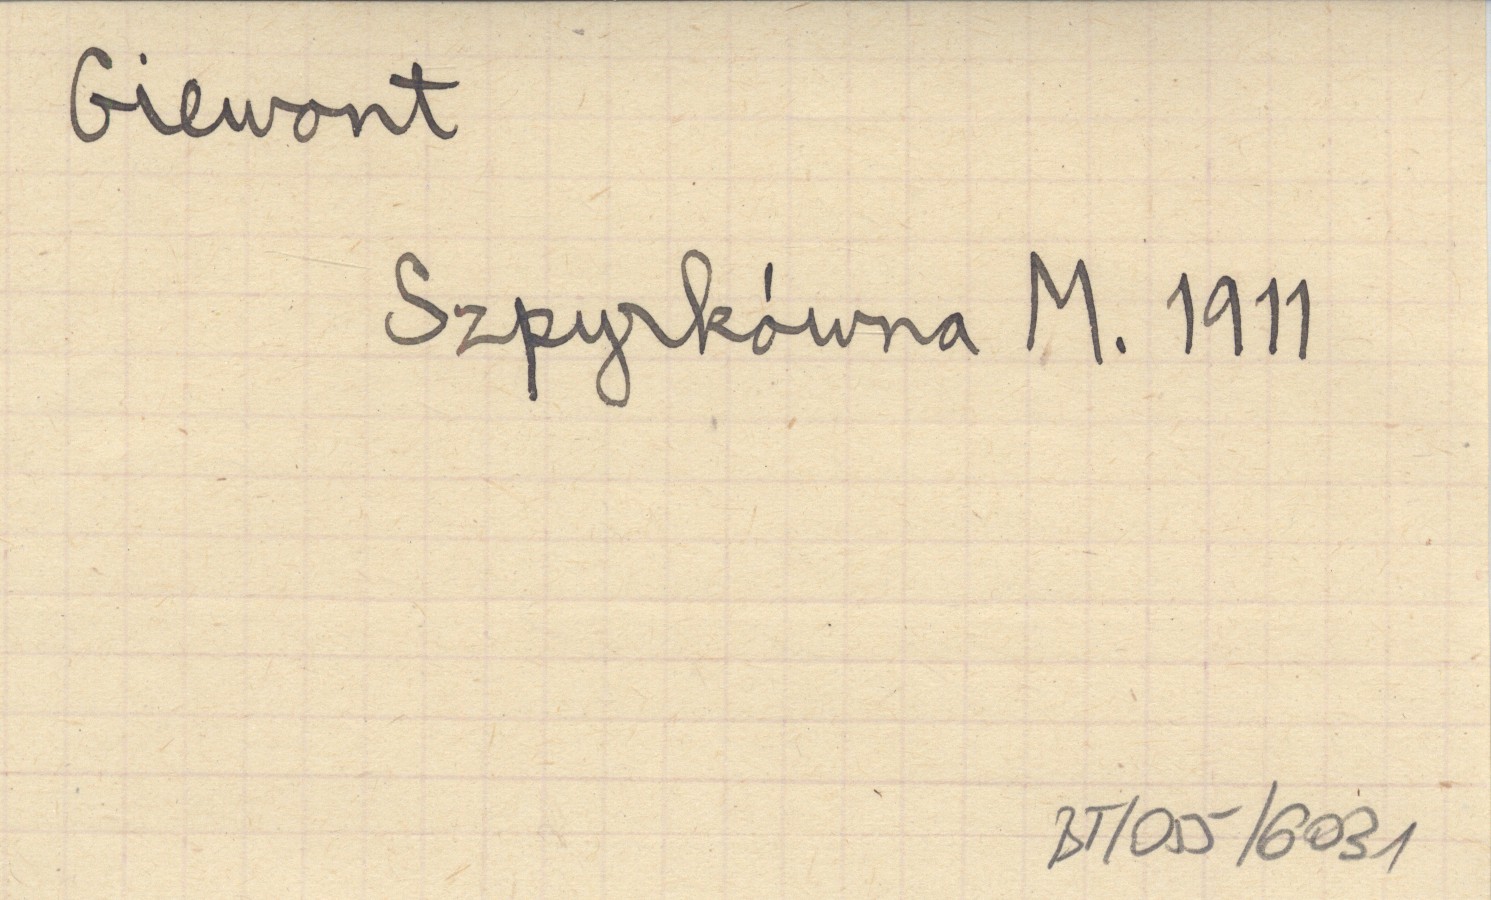 Giewont
Szpyrkówna M. 1911
BT/055/6031